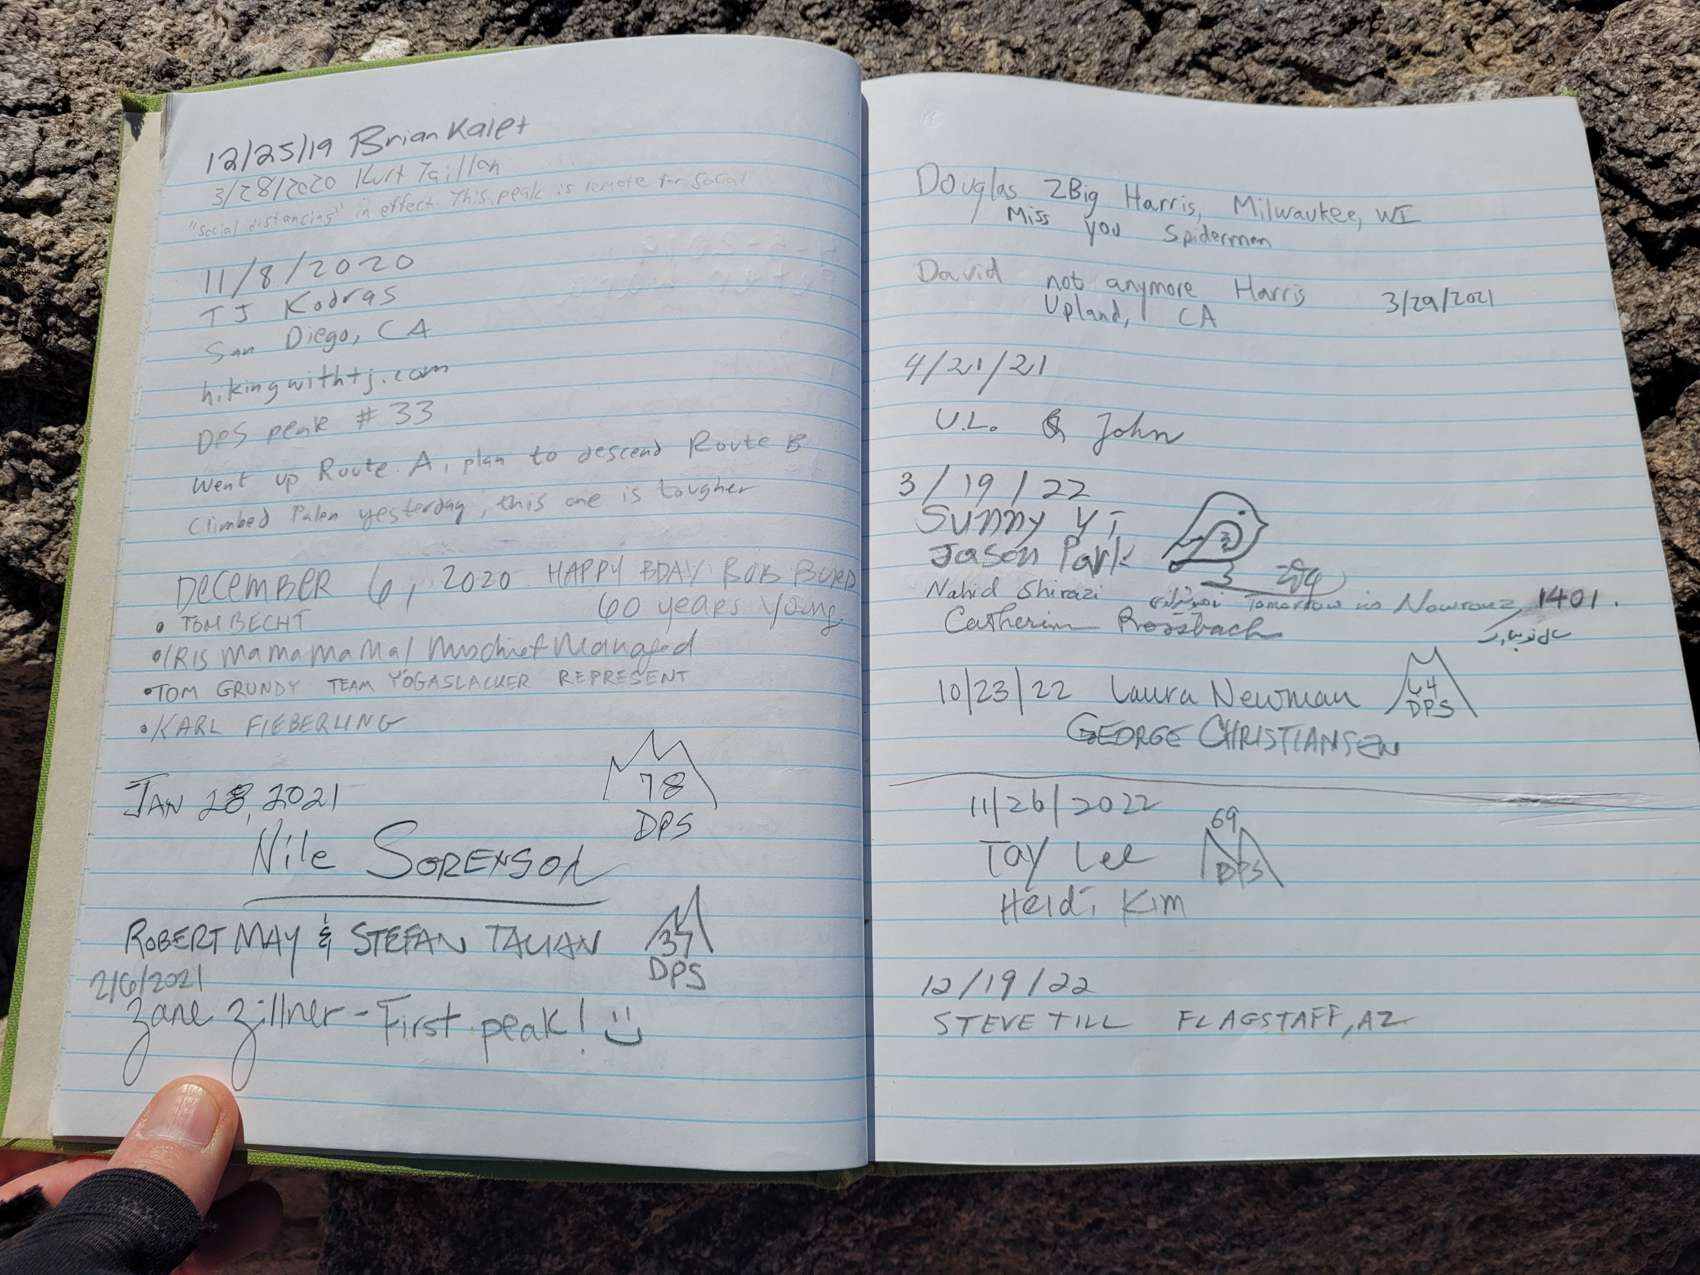 12/25/19 Brian Kalet
3/28/2020 Kurt Taillon
"Social distancing" in effect. This peak is remote for social
11/8/2020
TJ Kodras
San Diego, CA
hikingwithtj.com
DPS peak #33
Went up Route A, plan to descend Route B
Climbed Palen yesterday, this one is tougher
DECEMBER 6, 2020 HAPPY BDAY BOB BURD
60 years young
• TOM BECHT
• IRIS MaMaMaMa! Mischief Managed
• TOM GRUNDY TEAM YOGASLACKER REPRESENT
• KARL FIEBERLING
JAN 28, 2021
78
DPS
Nile SORENSON
ROBERT MAY & STEFAN TALIAN
37
DPS
2/6/2021
Zane Zillner - First peak!
Douglas 2Big Harris, Milwaukee, WI
Miss you Spiderman
David not anymore Harris 3/29/2021
Upland, CA
4/21/21
U.L. & John
3/19/22
Sunny Yi
Jason Park
Nahid Shirazi Tomorrow is Nowrouz, 1401.
Catherine Rossbach
10/23/22 Laura Newman
64
DPS
GEORGE CHRISTIANSEN
11/26/2022
69
DPS
Tay Lee
Heidi Kim
12/19/22
STEVE TILL FLAGSTAFF, AZ